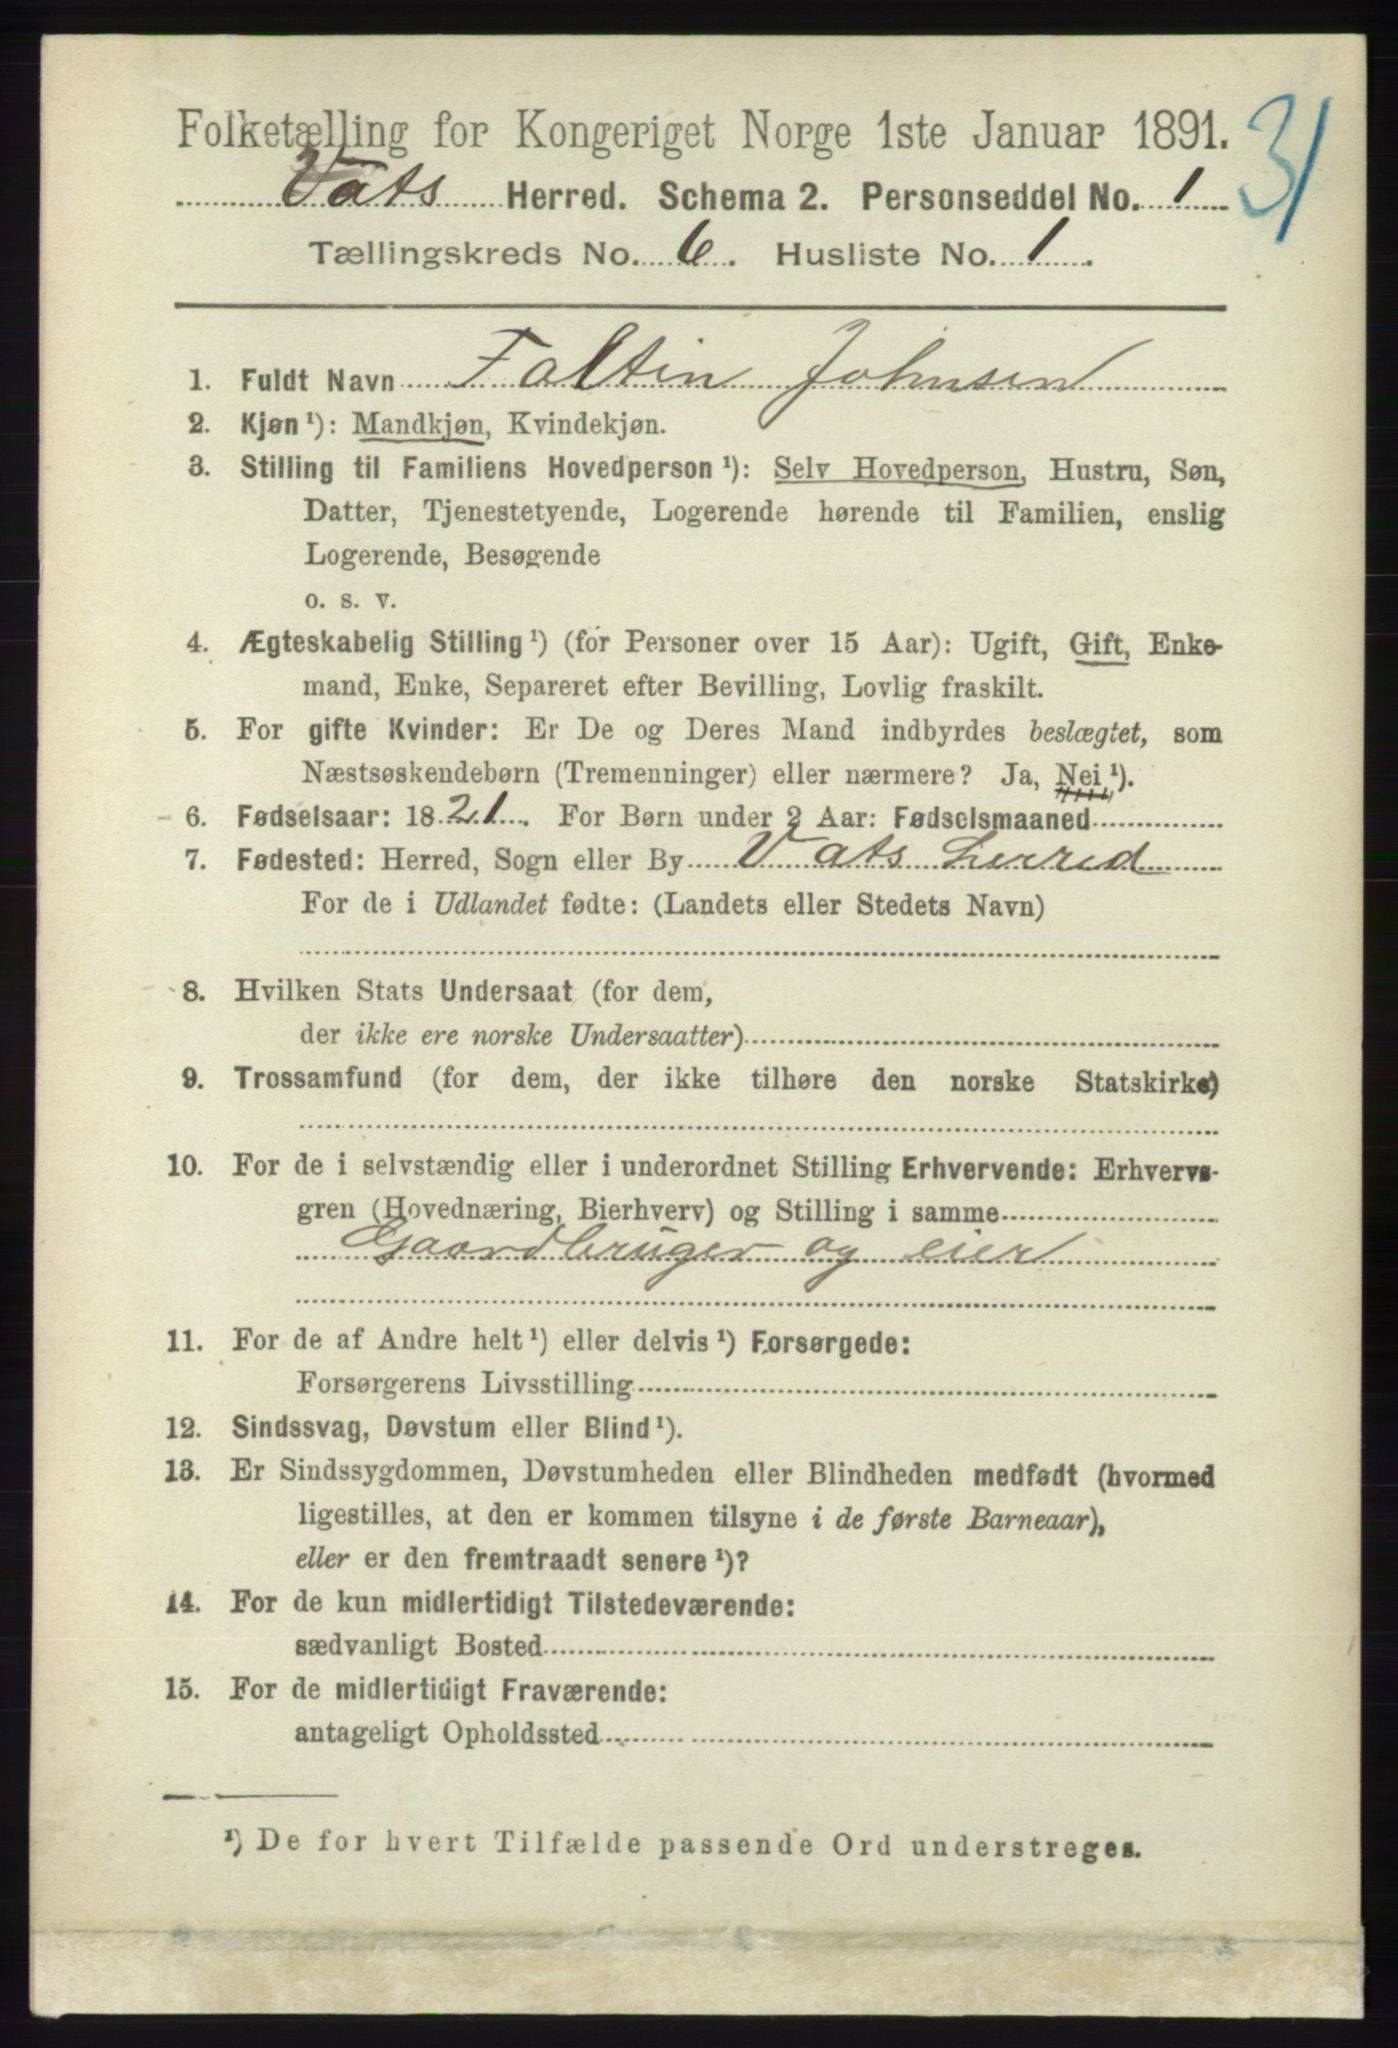 Folketælling for Kongeriget Norge 1ste Januar 1891.
31
Vats Herred. Schema 2. Personseddel No. 1
Tællingskreds No. 6. Husliste No. 1.
1. Fuldt Navn Faltin Johnsen
2. Kjøn¹): Mandkjøn, Kvindekjøn.
3. Stilling til Familiens Hovedperson¹): Selv Hovedperson, Hustru, Søn,
Datter, Tjenestetyende, Logerende hørende til Familien, enslig
Logerende, Besøgende
o. s. v.
4. Ægteskabelig Stilling¹) (for Personer over 15 Aar): Ugift, Gift, Enke-
mand, Enke, Separeret efter Bevilling, Lovlig fraskilt.
5. For gifte Kvinder: Er De og Deres Mand indbyrdes beslægtet, som
Næstsøskendebørn (Tremenninger) eller nærmere? Ja, Nei¹).
6. Fødselsaar: 1821. For Børn under 2 Aar: Fødselsmaaned
7. Fødested: Herred, Sogn eller By Vats herred
For de i Udlandet fødte: (Landets eller Stedets Navn)
8. Hvilken Stats Undersaat (for dem,
der ikke ere norske Undersaatter)
9. Trossamfund (for dem, der ikke tilhøre den norske Statskirke)
10. For de i selvstændig eller i underordnet Stilling Erhvervende: Erhvervs-
gren (Hovednæring, Bierhverv) og Stilling i samme
Gaardbruger og eier
11. For de af Andre helt¹) eller delvis¹) Forsørgede:
Forsørgerens Livsstilling
12. Sindssvag, Døvstum eller Blind¹).
13. Er Sindssygdommen, Døvstumheden eller Blindheden medfødt (hvormed
ligestilles, at den er kommen tilsyne i de første Barneaar),
eller er den fremtraadt senere¹)?
14. For de kun midlertidigt Tilstedeværende:
sædvanligt Bosted
15. For de midlertidigt Fraværende:
antageligt Opholdssted
¹) De for hvert Tilfælde passende Ord understreges.